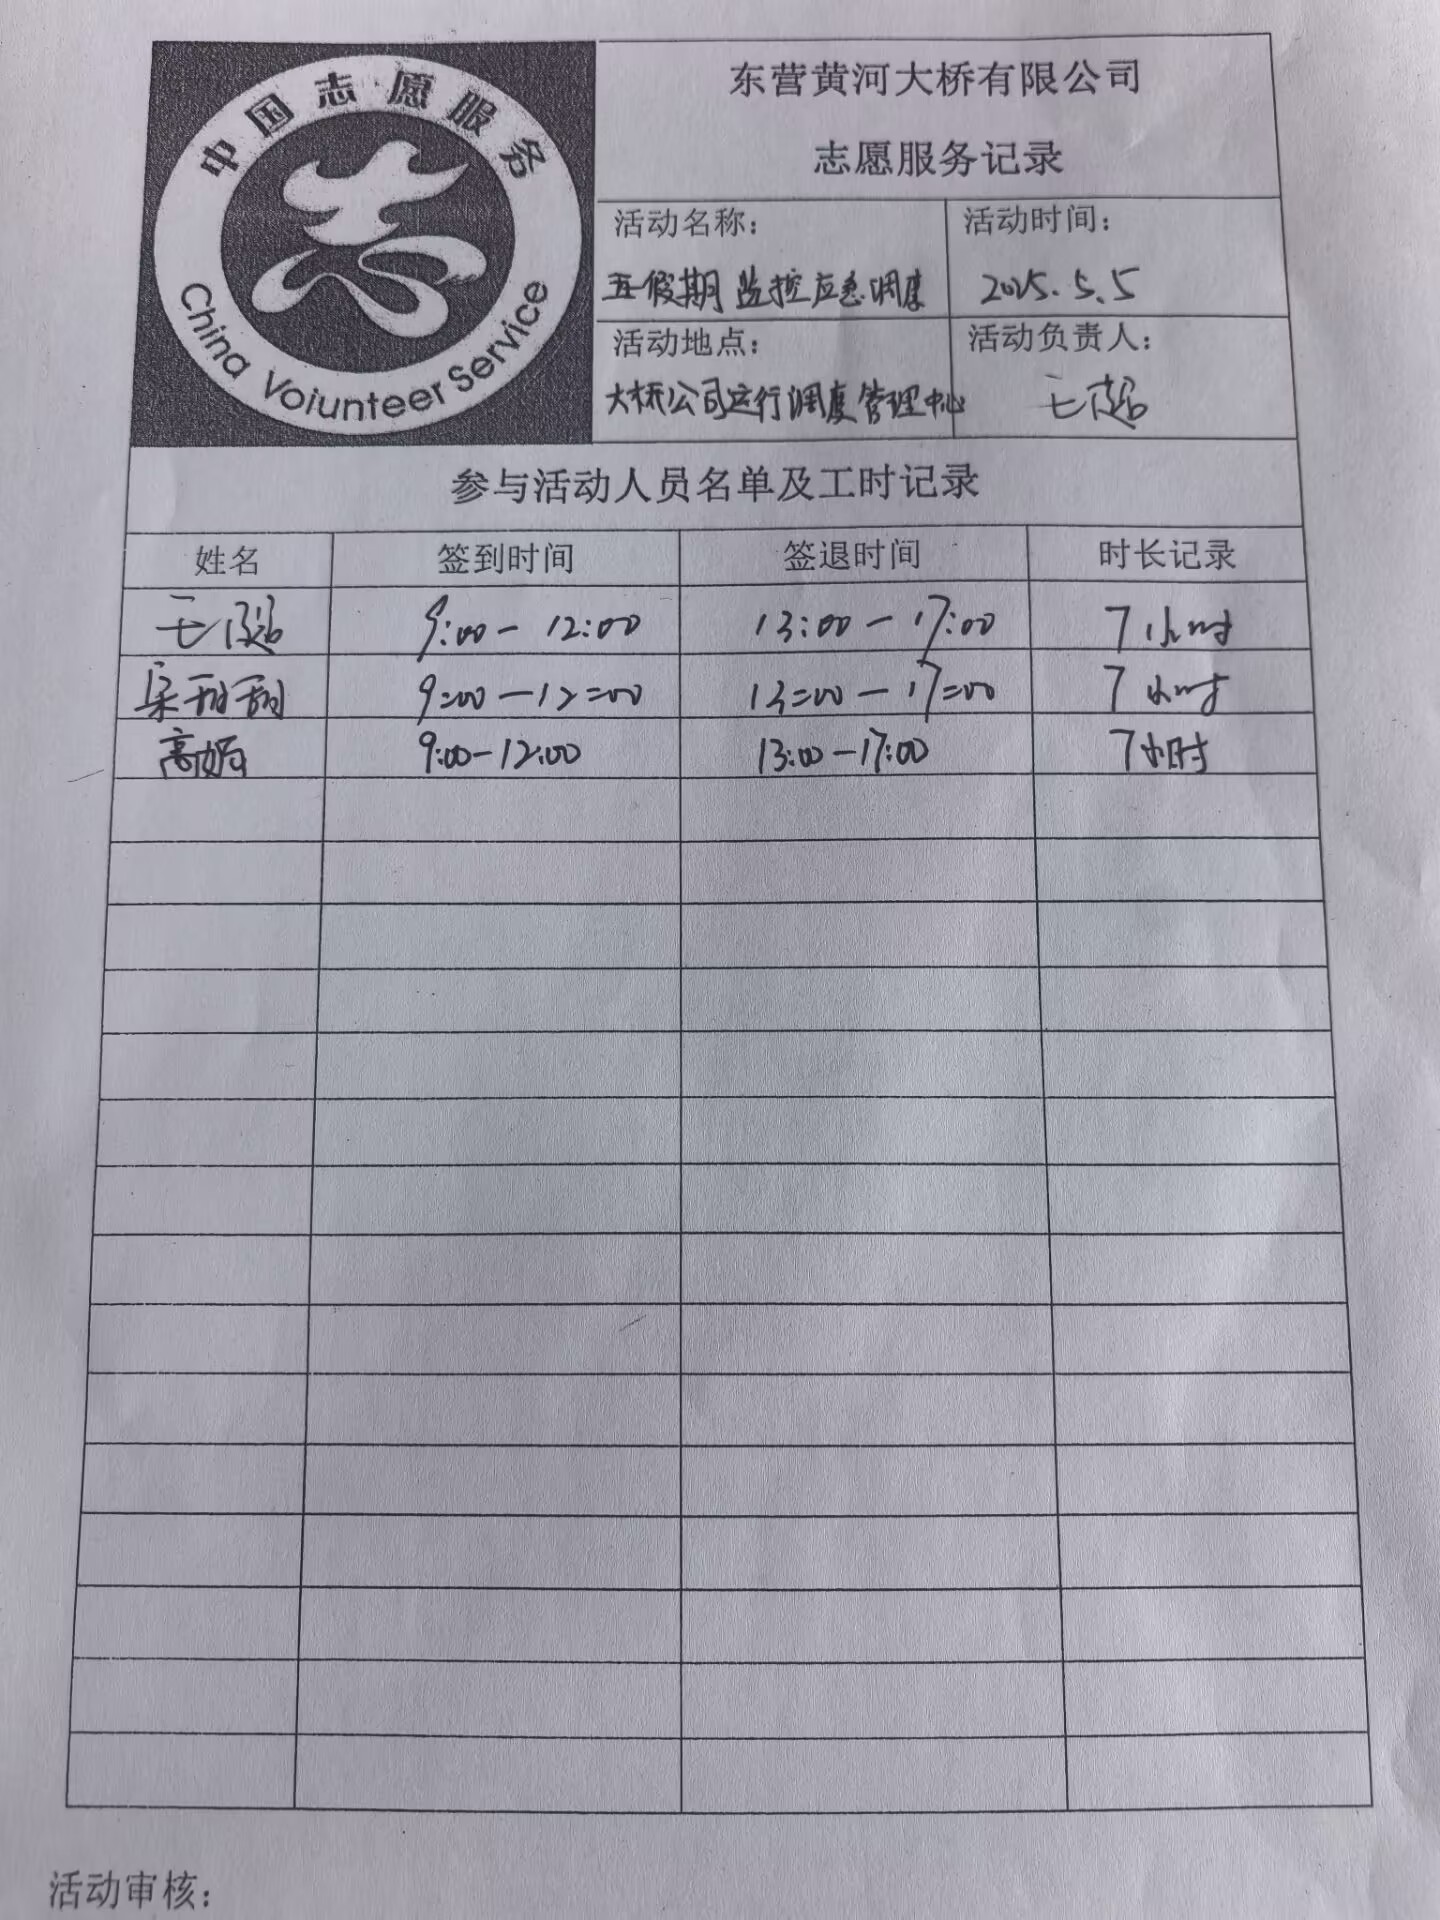 中国志愿服务
China Voiunteer Service
东营黄河大桥有限公司
志愿服务记录
活动名称：
活动时间：
五假期监控应急调度
2025.5.5
活动地点：
活动负责人：
大桥公司运行调度管理中心
王超
参与活动人员名单及工时记录
姓名 签到时间 签退时间 时长记录
王超 9:00-12:00 13:00-17:00 7小时
甜甜 9:00-12:00 13:00-17:00 7小时
高娟 9:00-12:00 13:00-17:00 7小时
活动审核：